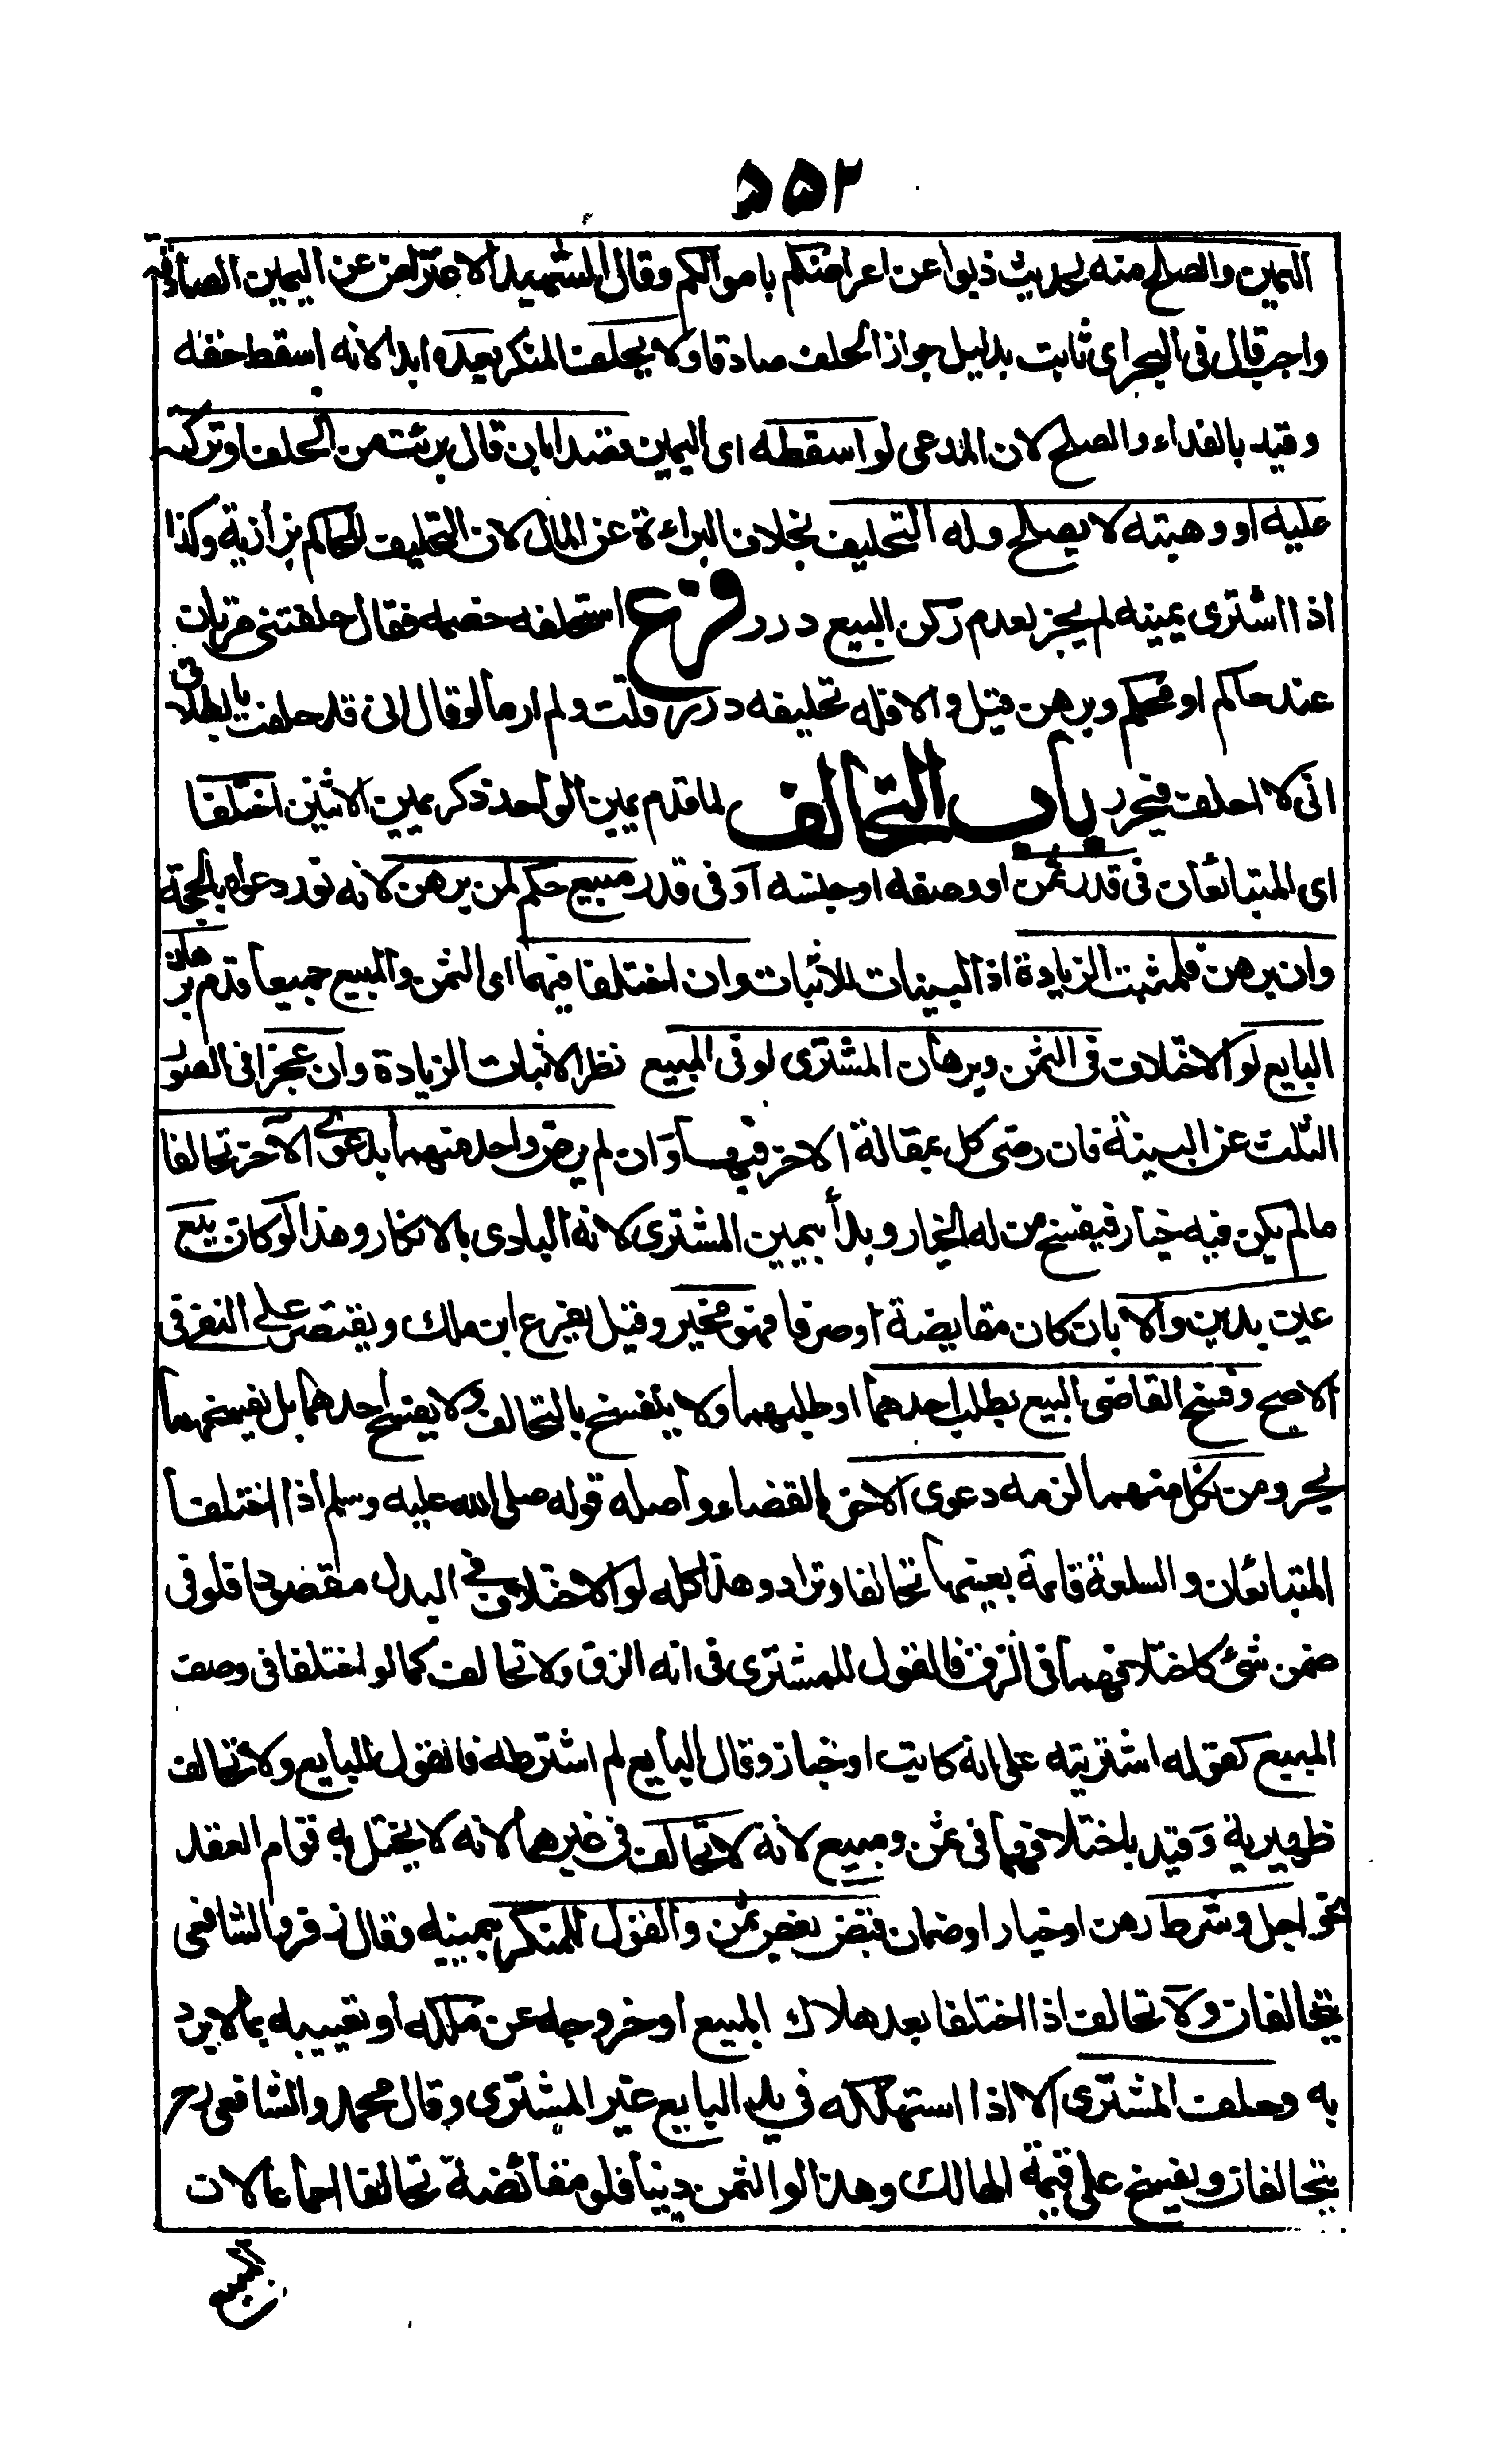 ۵۵۲
اليمين والصلح منه لحديث ذبوا عن اعراضكم باموالكم وقال الشهيد الاحتراز عن اليمين الصادقة
واجب قال فى البحر اى ثابت بدليل جواز الحلف صادقا ولا يحلف المنكر بعده ابدا لانه اسقط حقه
وقيد بالفداء والصلح لان المدعى لو اسقطه اى اليمين قصدا بان قال برئت من الحلف او تركته
عليه او وهبته لا يصح وله التحليف بخلاف البراءة عن المال لان التحليف للحاكم بزازية وكذا
اذا اشترى يمينه لم يجز لعدم ركن البيع درر فرع استحلفه خصمه فقال حلفتنى مرة ان
عند حاكم او محكم وبرهن قبل والا فله تحليفه درر قلت ولم ار ما لو قال انى قد حلفت بالطلاق
انى لا احلف فيحرر باب التحالف لما قدم يمين الواحد ذكر يمين الاثنين اختلفا
اى المتبائعان فى قدر ثمن او وصفه او جنسه او فى قدر مبيع حكم لمن برهن لانه نور دعواه بالحجة
وان برهن فلمثبت الزيادة اذ البينات للاثبات وان اختلفا فيهما اى الثمن والمبيع جميعا قدم برهان
البايع لو الاختلاف فى الثمن وبرهان المشترى لو فى المبيع نظرا لاثبات الزيادة وان عجزا فى الصور
الثلث عن البينة فان رضى كل بمقالة الاخر فبها وان لم يرض واحد منهما بدعوى الآخر تحالفا
مالم يكن فيه خيار فيفسخ من له الخيار وبدأ بيمين المشترى لانه البادى بالانكار وهذا لو كان بيع
عين بدين والا بان كان مقايضة او صرفا فهو مخير وقيل يقرع ابن ملك ويقتصر على النفى فى
الاصح وفسخ القاضى البيع بطلب احدهما او طلبهما ولا ينفسخ بالتحالف ولا يفسخ احدهما بل بفسخهما
بحر ومن نكل منهما لزمه دعوى الاخر بالقضاء واصله قوله صلى الله عليه وسلم اذا اختلف
المتبائعان والسلعة قائمة بعينها تحالفا وترادا وهذا كله لو الاختلاف فى البدل مقصودا فلو فى
ضمن شئ كاختلافهما فى الزق فالقول للمشترى فى انه الزق ولا تحالف كما لو اختلفا فى وصف
المبيع كقوله اشتريته على انه كاتب او خباز وقال البايع لم اشترطه فالقول للبايع ولا تحالف
ظهيرية وقيد باختلافهما فى ثمن ومبيع لانه لا تحالف فى غيرهما لانه لا يختل به قوام العقد
نحو اجل وشرط رهن او خيار او ضمان قبض بعض ثمن والقول للمنكر بيمينه وقال زفر والشافعى
يتحالفان ولا تحالف اذا اختلفا بعد هلاك المبيع او خروجه عن ملكه او تعييبه بما لا يرد
به وحلف المشترى الا اذا استهلكه فى يد البايع غير المشترى وقال محمد والشافعى رح
يتحالفان ويفسخ على قيمة الهالك وهذا لو الثمن دينا فلو مقائضة تحالفا اجماعا لان